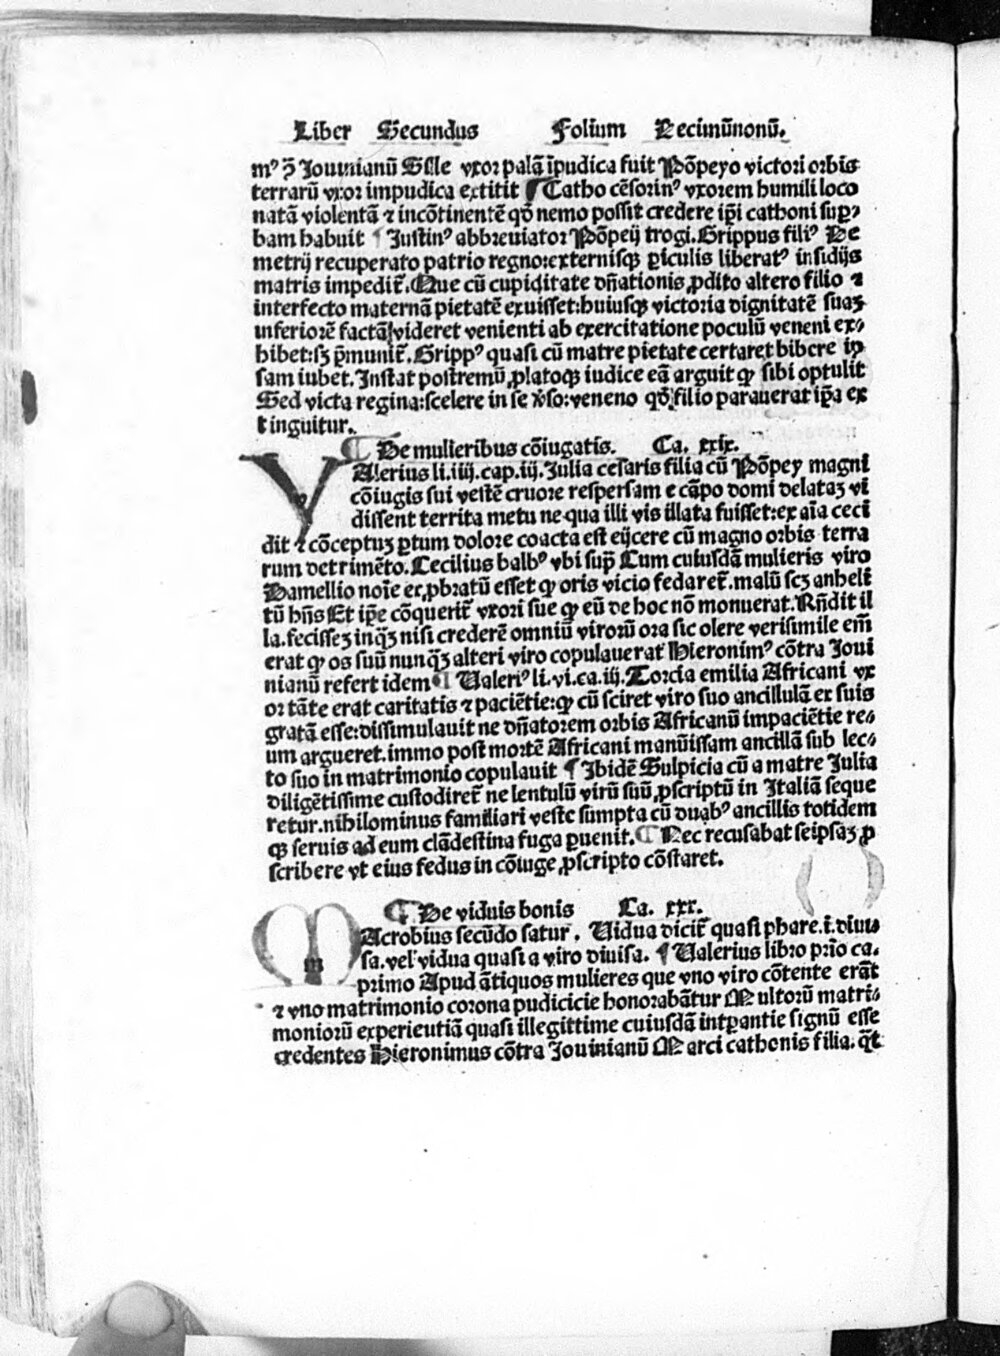 Liber Secundus Folium Decimũnonũ.
mꝰ ꝯ̃ Iouinianũ Sille vxor palã ĩpudica fuit Põpeyo victori orbis
terrarũ vxor impudica extitit ¶ Catho cẽsorinꝰ vxorem humili loco
natã violentã ⁊ incõtinentẽ qd̛ nemo possit credere ip̃i cathoni suꝑ⸗
bam habuit ¶ Iustinꝰ abbreuiator Põpeij trogi. Grippus filiꝰ De
metrij recuperato patrio regno: externisqꝫ ꝑiculis liberatꝰ insidijs
matris impedit̃. Que cũ cupiditate dñationis ꝓdito altero filio ⁊
interfecto maternã pietatẽ exuisset: huiusqꝫ victoria dignitatẽ suaꝫ
inferiorẽ factã videret venienti ab exercitatione poculũ veneni ex⸗
hibet: sꝫ p̃munit̃. Grippꝰ quasi cũ matre pietate certaret bibere ip̃
sam iubet. Instat postremũ ꝓlatoqꝫ iudice eã arguit ꝙ sibi optulit
Sed victa regina: scelere in se ꝟso: veneno qd̛ filio parauerat ip̃a ex
tinguitur.
¶ De mulieribus cõiugatis. Ca. xxix.
VAlerius li. iiij. cap. iij. Iulia cesaris filia cũ Põpey magni
cõiugis sui vestẽ cruore respersam e cãpo domi delataꝫ vi
dissent territa metu ne qua illi vis illata fuisset: ex aĩa ceci
dit ⁊ cõceptuꝫ ꝑtum dolore coacta est eijcere cũ magno orbis terra
rum detrimẽto. Cecilius balbꝰ vbi sup̃ Cum cuiusdã mulieris viro
Hamellio noĩe exꝓbratũ esset ꝙ oris vicio fedaret̃. malũ scꝫ anheli
tũ hñs Et ip̃e cõquerit̃ vxori sue ꝙ eũ de hoc nõ monuerat. Rñdit il
la. fecisseꝫ inq̃ꝫ nisi crederẽ omniũ virorũ ora sic olere verisimile em̃
erat ꝙ os suũ nunq̃ꝫ alteri viro copulauerat̃ Hieronimꝰ cõtra Ioui
nianũ refert idem ¶ Valeriꝰ li. vi. ca. iij. Torcia emilia Africani vx
or tãte erat caritatis ⁊ paciẽtie: ꝙ cũ sciret viro suo ancillulã ex suis
gratã esse: dissimulauit ne dñatorem orbis Africanũ impaciẽtie re⸗
um argueret. immo post mortẽ Africani manũissam ancillã sub lec⸗
to suo in matrimonio copulauit ¶ Ibidẽ Sulpicia cũ a matre Iulia
diligẽtissime custodiret̃ ne lentulũ virũ suũ ꝓscriptũ in Italiã seque
retur. nihilominus familiari veste sumpta cũ duabꝰ ancillis totidem
qꝫ seruis ad eum clãdestina fuga ꝑuenit. ¶ Nec recusabat seipsaꝫ ꝓ
scribere vt eius fedus in cõiuge ꝓscripto cõstaret.
¶ De viduis bonis Ca. xxx.
MAcrobius secũdo satur̃. Vidua dicit̃ quasi phare. i. diui⸗
sa. vel vidua quasi a viro diuisa. ¶ Valerius libro prĩo ca.
primo Apud ãtiquos mulieres que vno viro cõtente erãt
⁊ vno matrimonio corona pudicicie honorabãtur Multorũ matri⸗
moniorũ experieutiã quasi illegittime cuiusdã intꝑantie signũ esse
credentes Hieronimus cõtra Iouinianũ Marci cathonis filia. q̃t